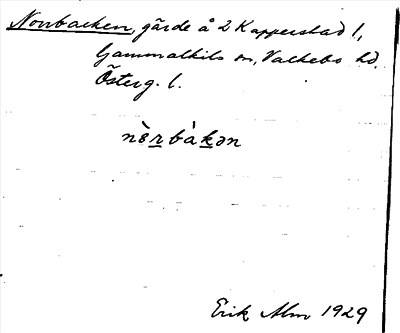 Norrbacken, gärde å 2 Kapperstad 1,
Gammalkils sn, Valkebo hd.
Österg. l.
nòrbàkən
Erik Alm 1929